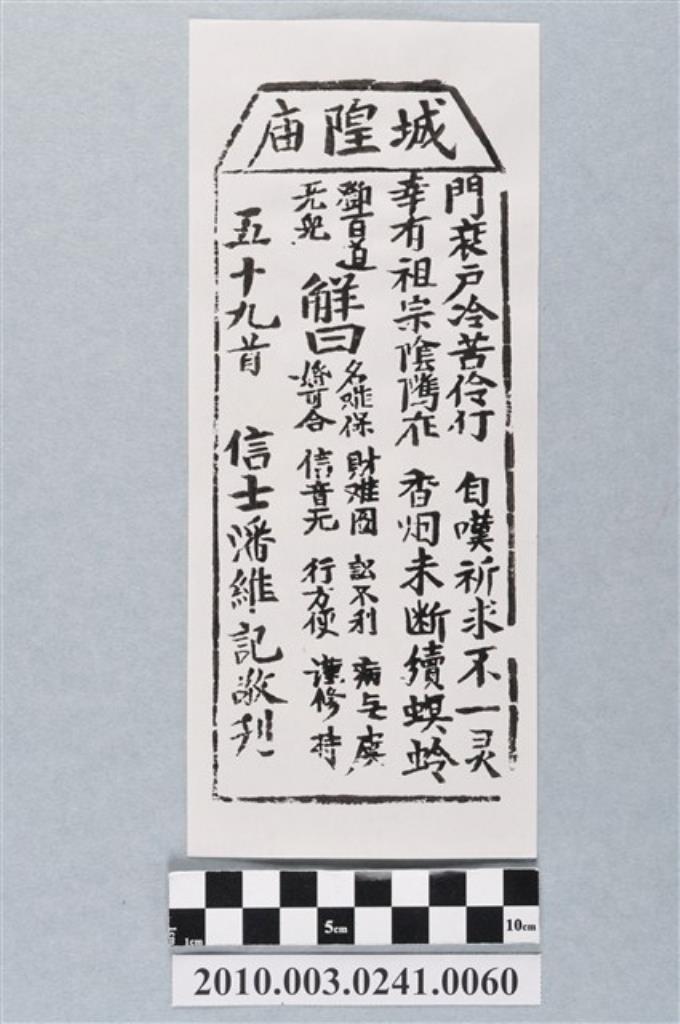 城隍庙
門衰戶冷苦伶仃 自嘆祈求不一灵
幸有祖宗陰隲在 香烟未断續螟蛉
鄧百道
无兒
解曰
名难保 財难图 訟不利 病无虞
婚可合 信音无 行方便 謹修持
五十九首 信士潘維記敬刊
1cm 5cm 10cm
2010.003.0241.0060